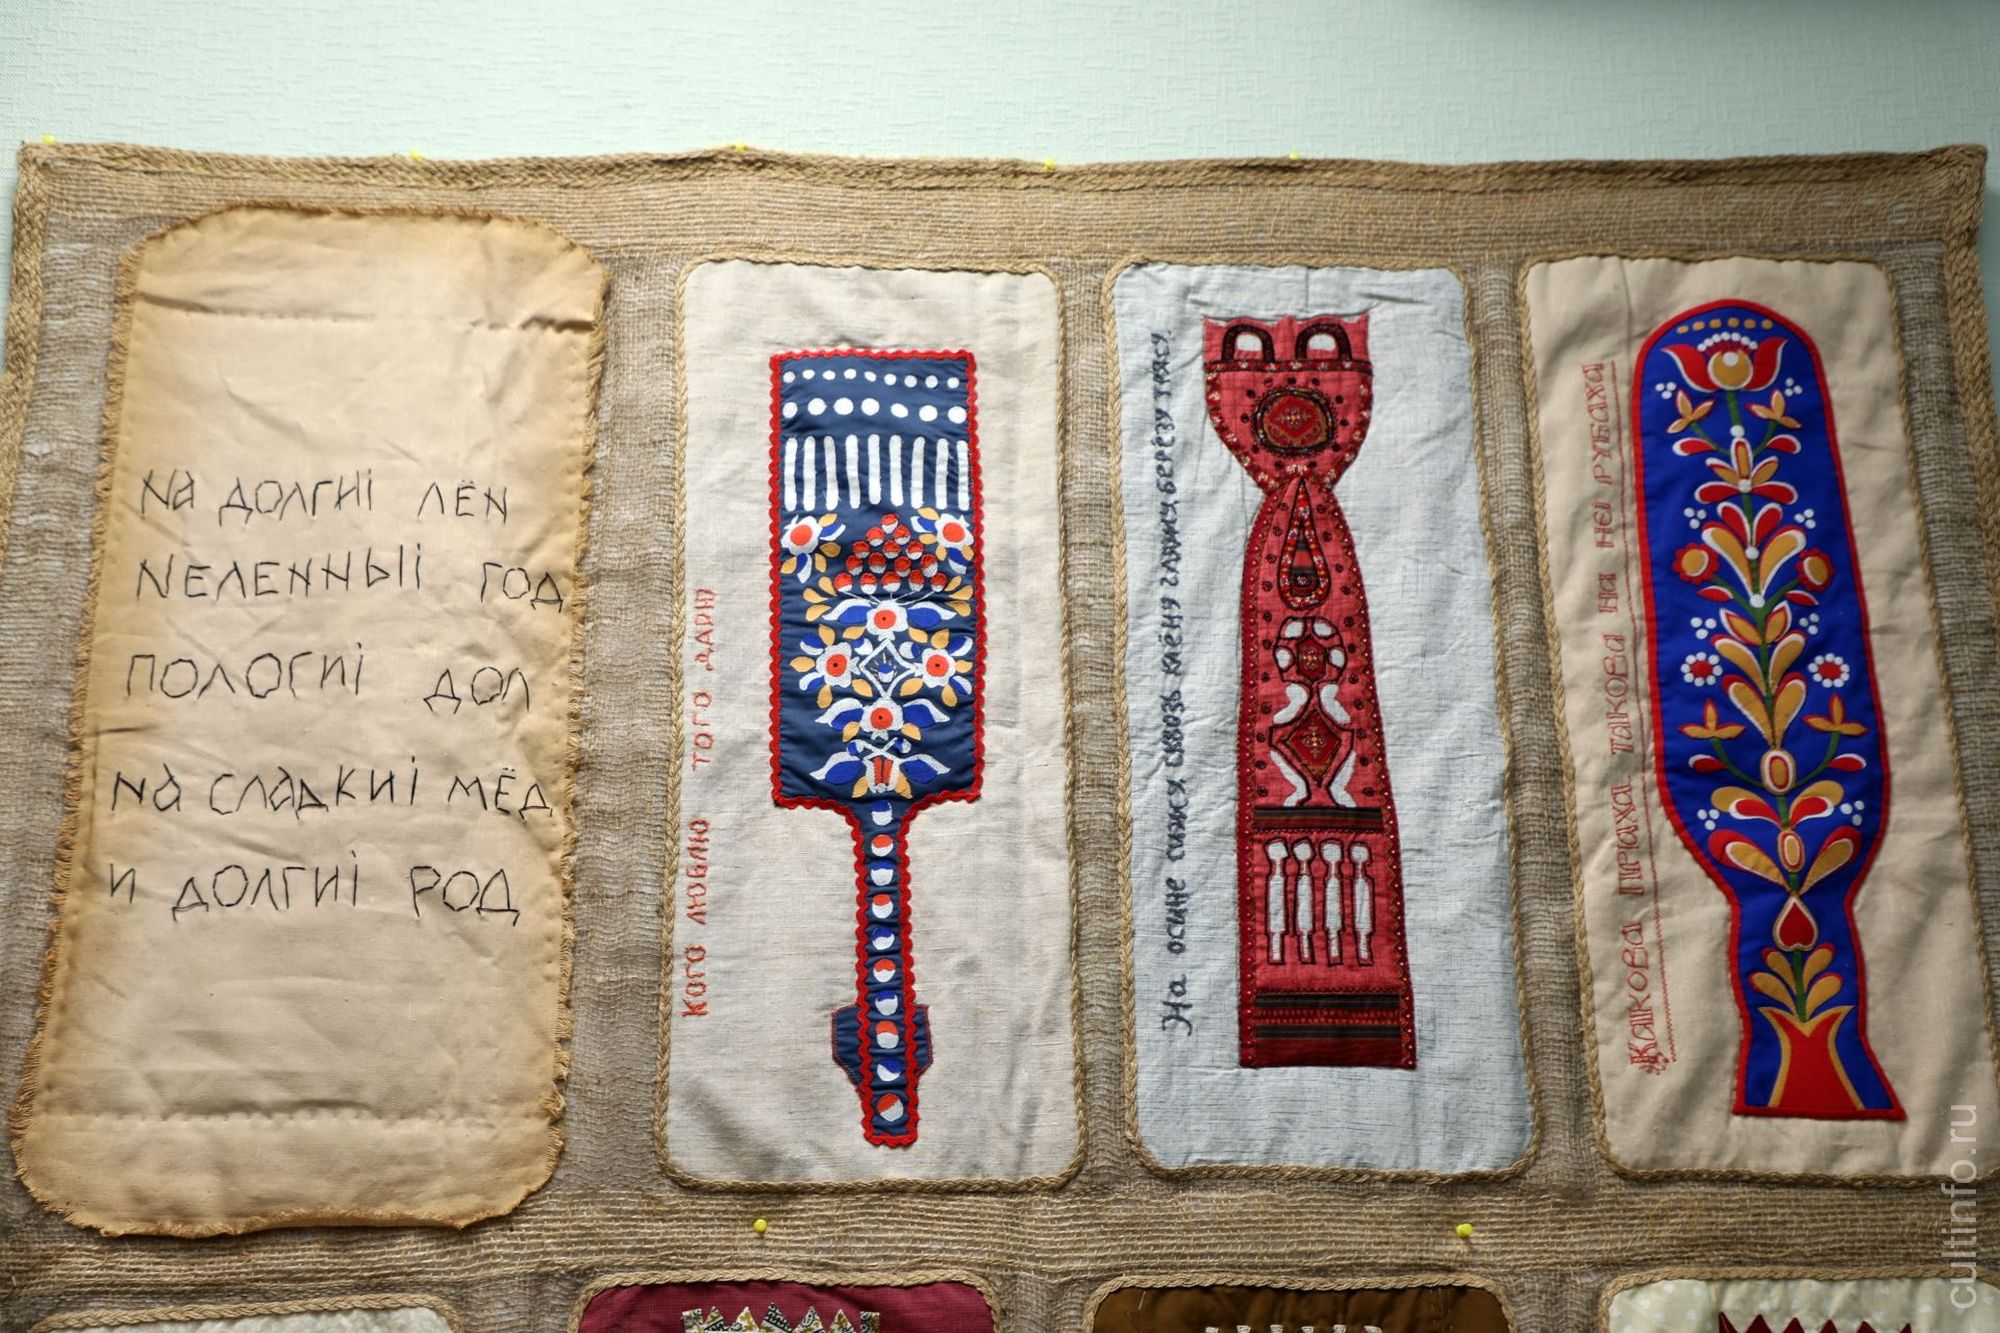 На долгиі лён
Неленныіі год
Пологиі дол
На сладкиі мёд
и долгиі род
Кого люблю того дарю
На осине сижу, сквозь клёну гляжу, берёзу трясу.
Какова пряха такова на неі рубаха
cultinfo.ru